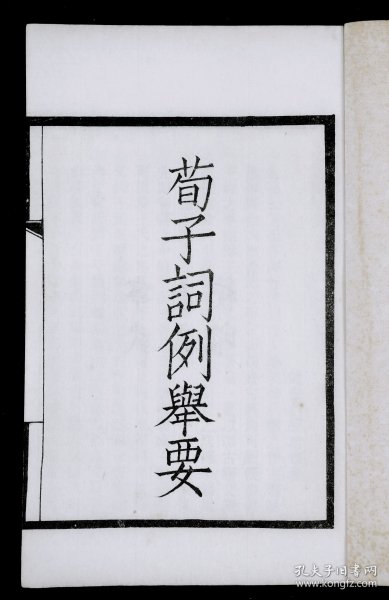 荀子詞例舉要
孔夫子旧书网
www.kongfz.com